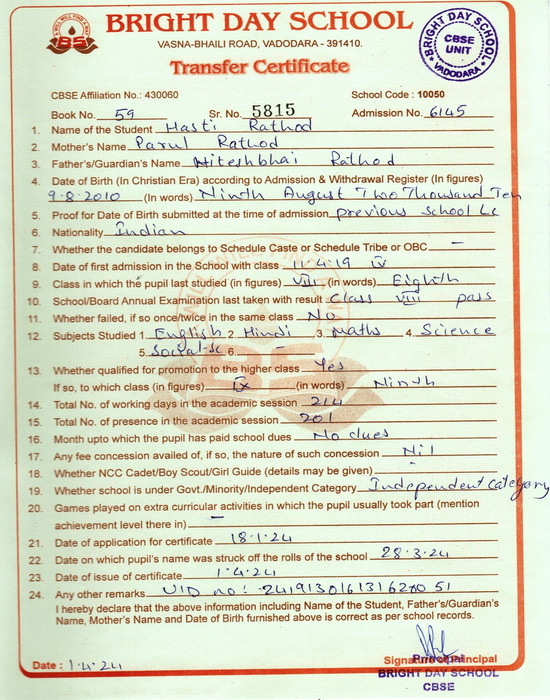 BRIGHT DAY SCHOOL
VASNA-BHAILI ROAD, VADODARA - 391410.
Transfer Certificate
BRIGHT DAY SCHOOL
CBSE
UNIT
VADODARA
CBSE Affiliation No.: 430060 School Code : 10050
Book No. 59 Sr. No. 5815 Admission No. 6145
1. Name of the Student Hasti Rathod
2. Mother's Name Parul Rathod
3. Father's/Guardian's Name Hiteshbhai Rathod
4. Date of Birth (In Christian Era) according to Admission & Withdrawal Register (In figures)
9-8-2010 (In words) Ninth August Two Thousand Ten
5. Proof for Date of Birth submitted at the time of admission previous school Lc
6. Nationality Indian
7. Whether the candidate belongs to Schedule Caste or Schedule Tribe or OBC —
8. Date of first admission in the School with class 11.4.19 IV
9. Class in which the pupil last studied (in figures) VIII (in words) Eighth
10. School/Board Annual Examination last taken with result Class VIII pass
11. Whether failed, if so once/twice in the same class No
12. Subjects Studied 1. English 2. Hindi 3. Maths 4. Science
5. Social-Sc 6. -
13. Whether qualified for promotion to the higher class Yes
If so, to which class (in figures) IX (in words) Ninth
14. Total No. of working days in the academic session 214
15. Total No. of presence in the academic session 201
16. Month upto which the pupil has paid school dues No dues
17. Any fee concession availed of, if so, the nature of such concession Nil
18. Whether NCC Cadet/Boy Scout/Girl Guide (details may be given)
19. Whether school is under Govt./Minority/Independent Category Independent category
20. Games played on extra curricular activities in which the pupil usually took part (mention
achievement level there in) —
21. Date of application for certificate 18.1.24
22. Date on which pupil's name was struck off the rolls of the school 28.3.24
23. Date of issue of certificate 1.4.24
24. Any other remarks UID no:
I hereby declare that the above information including Name of the Student, Father's/Guardian's
Name, Mother's Name and Date of Birth furnished above is correct as per school records.
Date : 1.4.24 Principal
BRIGHT DAY SCHOOL
CBSE